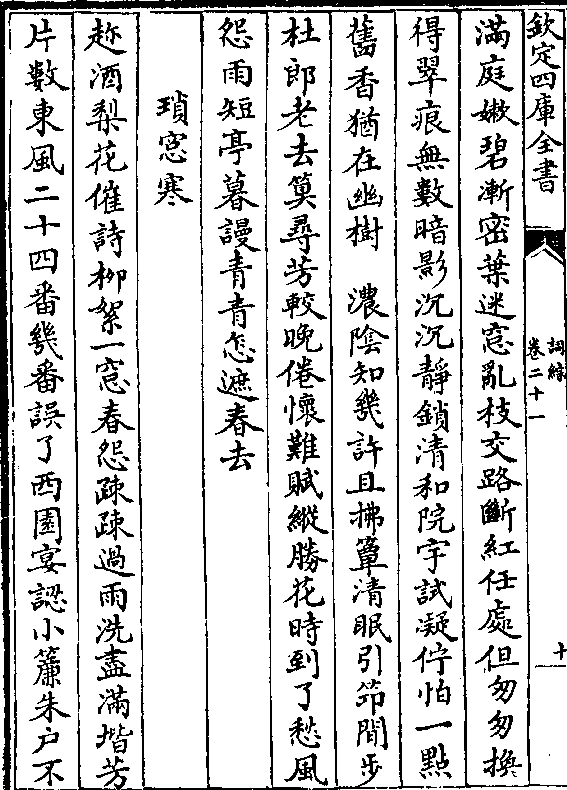 欽定四庫全書
詞綜
卷二十一
十
滿庭嫩碧漸密葉迷窓亂枝交路斷紅任處但匆匆換
得翠痕無數暗影沉沉靜鎖清和院宇試凝佇怕一點
舊香猶在幽樹　濃陰知幾許且拂簟清眠引筇閒步
杜郎老去算尋芳較晚倦懷難賦縱勝花時到了愁風
怨雨短亭暮謾青青怎遮春去
瑣窓寒
趂酒梨花催詩柳絮一窓春怨疎疎過雨洗盡滿堦芳
片數東風二十四番幾番誤了西園宴認小簾朱户不